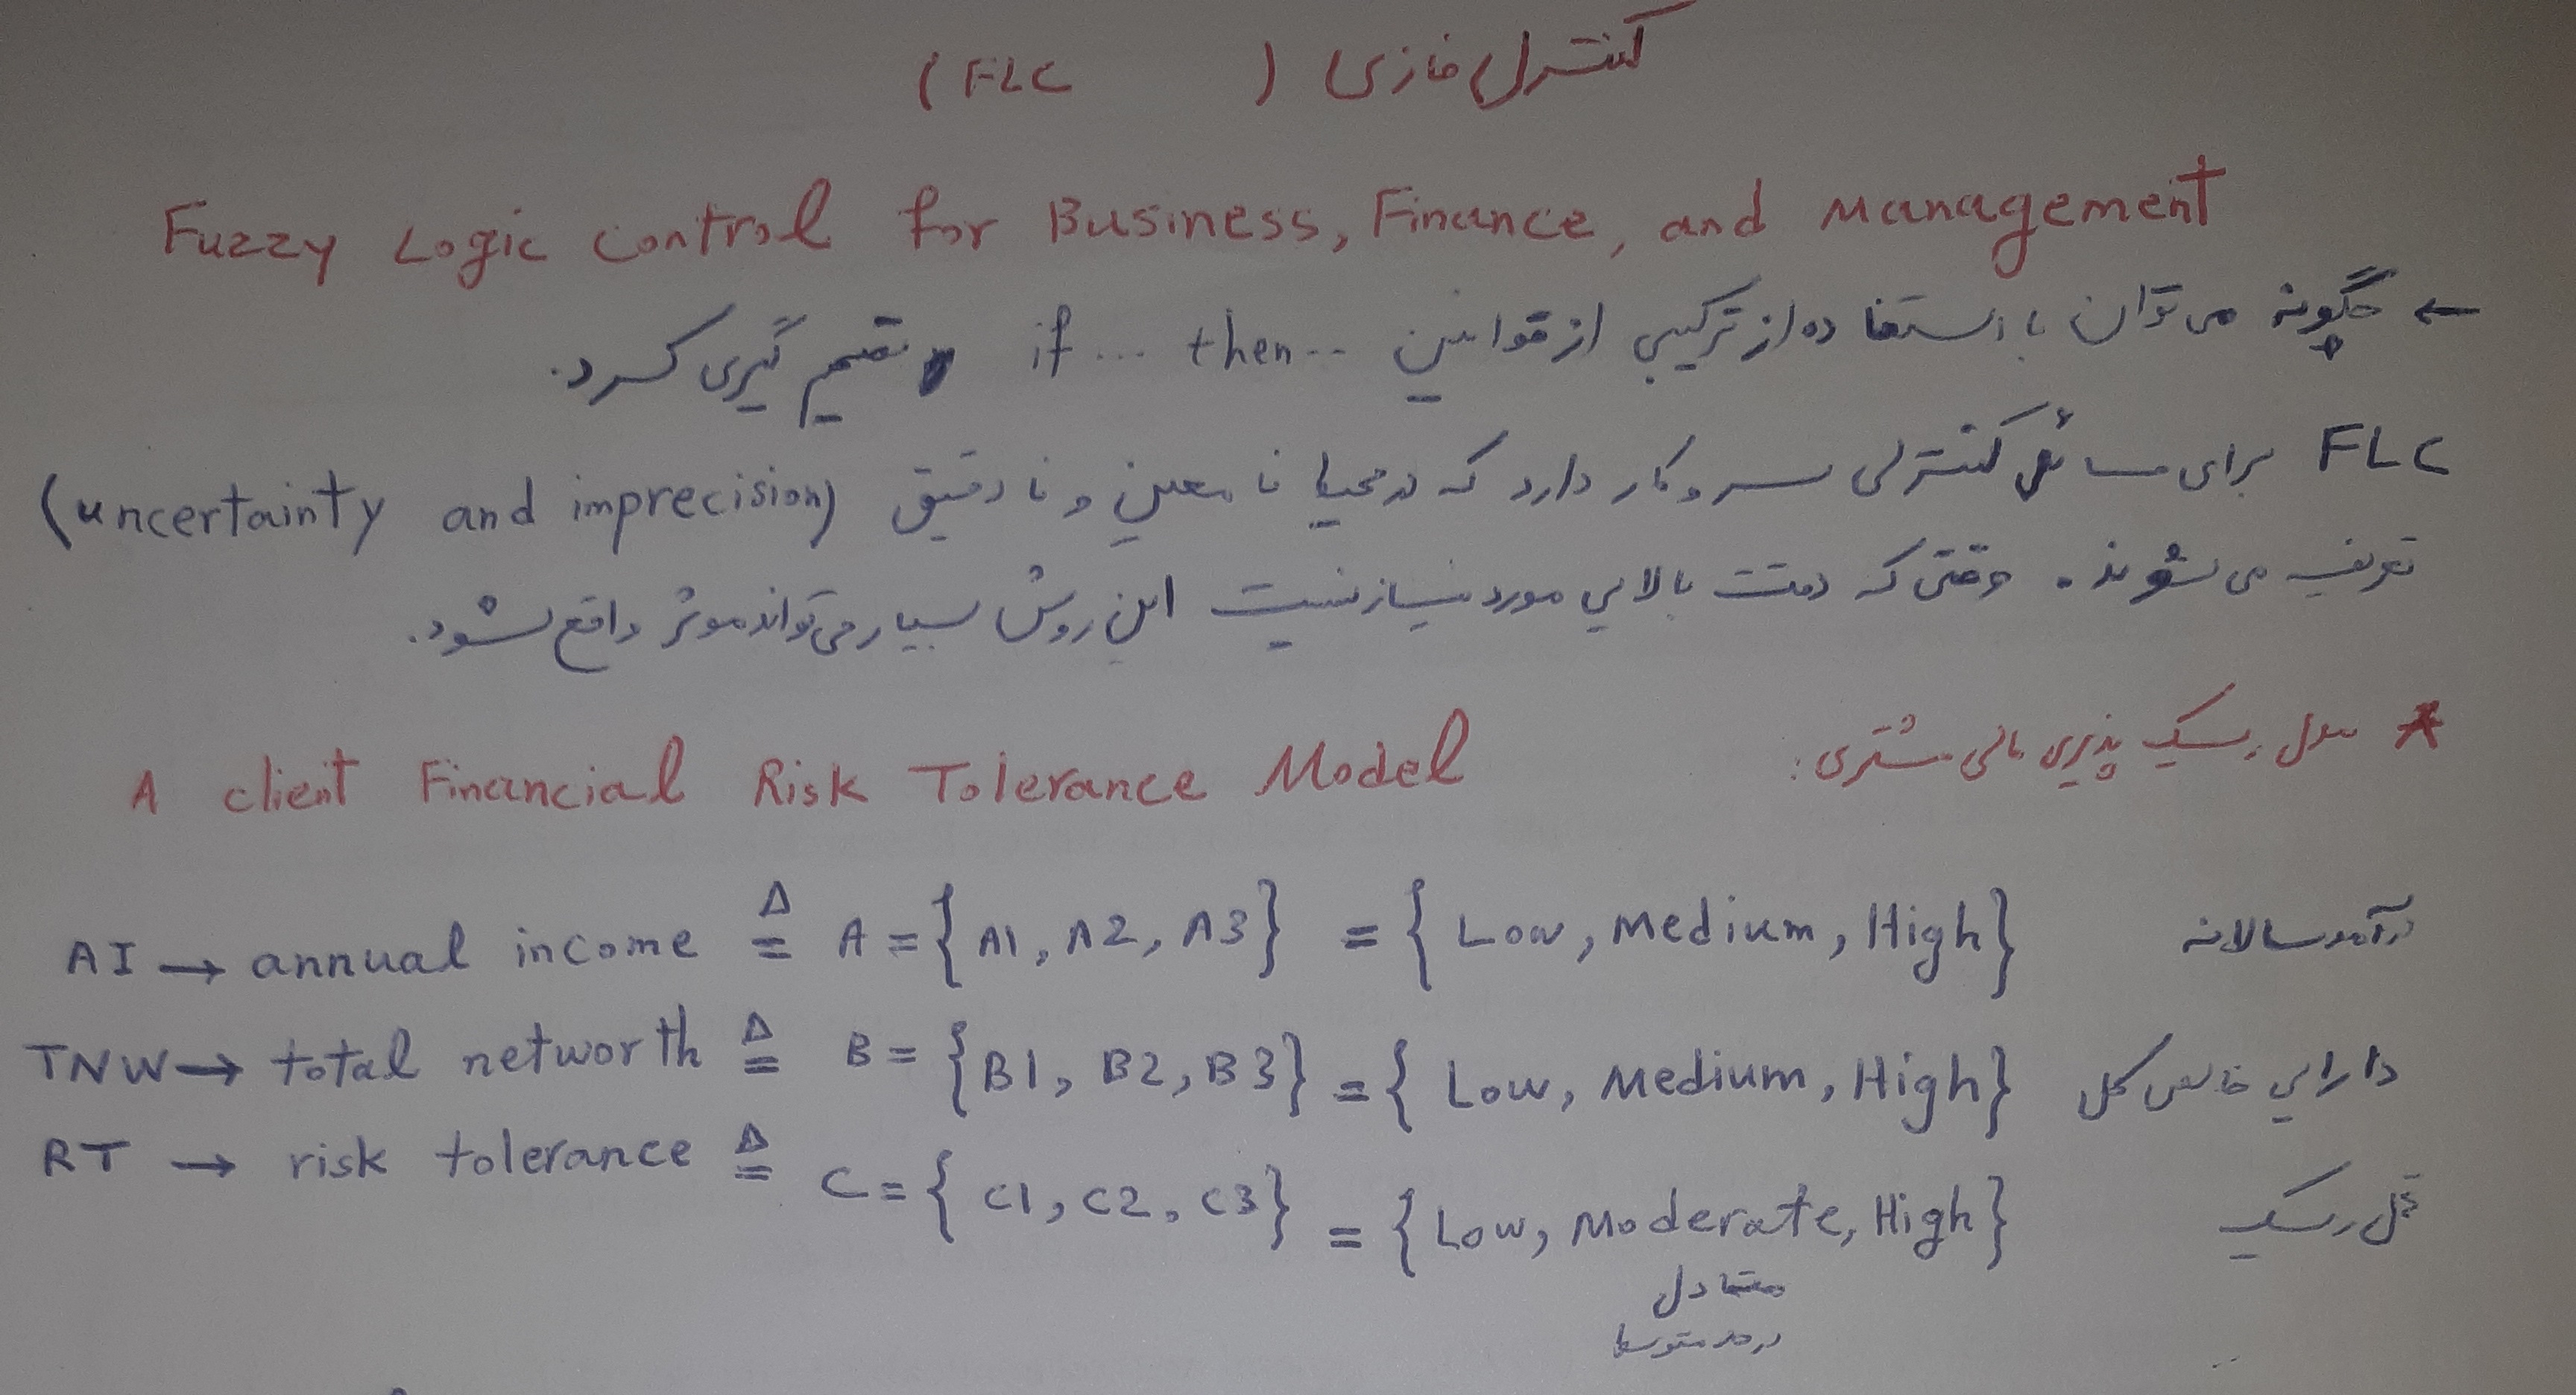 کنترل فازی (FLC)
Fuzzy Logic control for Business, Finance, and Management
← چگونه می توان با استفاده از ترکیبی از قوانین if ... then .. تصمیم گیری کرد.
FLC برای مسائل کنترلی سر و کار دارد که در محیط نا معین و نا دقیق (uncertainty and imprecision)
تعریف می شوند. وقتی که دقت بالایی مورد نیاز نیست این روش بسیار می تواند موثر واقع شود.
* مدل ریسک پذیری مالی مشتری: A client Financial Risk Tolerance Model
AI → annual income ≜ A = {A1, A2, A3} = {Low, Medium, High} درآمد سالانه
TNW → total networth ≜ B = {B1, B2, B3} = {Low, Medium, High} دارایی خالص کل
RT → risk tolerance ≜ C = {C1, C2, C3} = {Low, Moderate, High} تحمل ریسک
متعادل
در حد متوسط